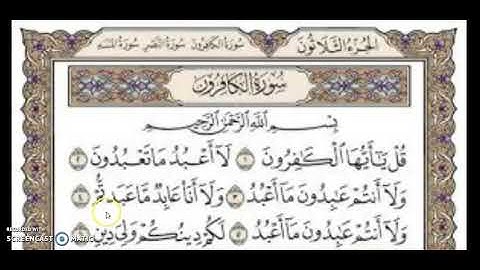 الجزء الثلاثون
سورة الكافرون سورة النصر سورة المسد
سورة الكافرون
بسم الله الرحمن الرحيم
قُلْ يَٰٓأَيُّهَا ٱلْكَٰفِرُونَ ١ لَآ أَعْبُدُ مَا تَعْبُدُونَ ٢
وَلَآ أَنتُمْ عَٰبِدُونَ مَآ أَعْبُدُ ٣ وَلَآ أَنَا۠ عَابِدٌ مَّا عَبَدتُّمْ ٤
وَلَآ أَنتُمْ عَٰبِدُونَ مَآ أَعْبُدُ ٥ لَكُمْ دِينُكُمْ وَلِىَ دِينِ ٦
RECORDED WITH
SCREENCAST MATIC